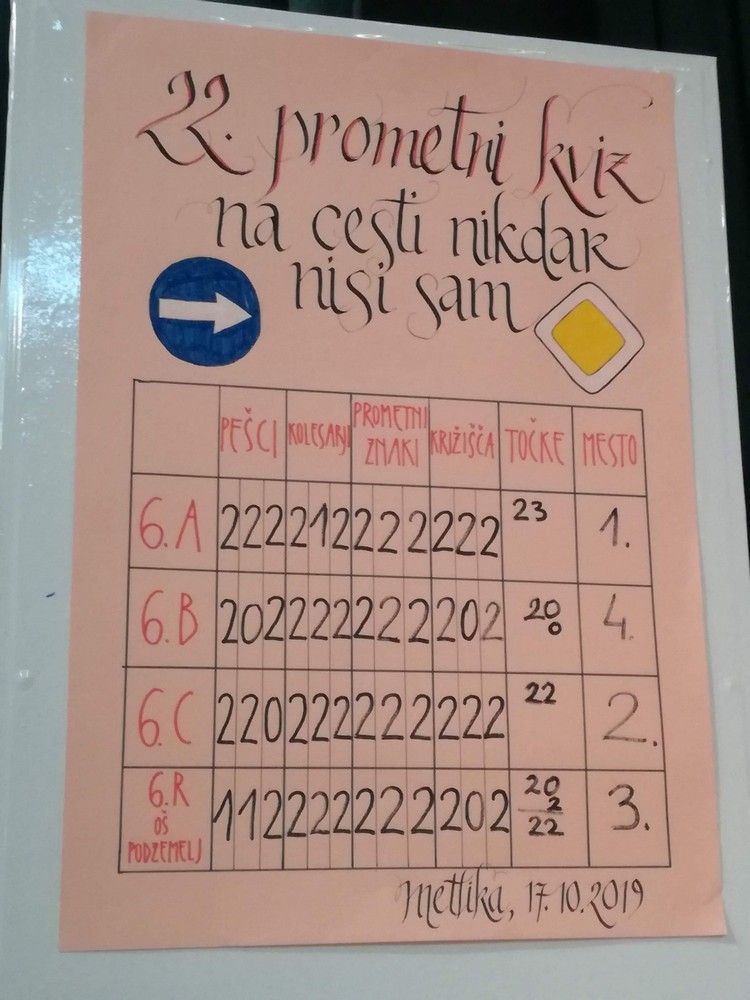 22. prometni kviz
na cesti nikdar
nisi sam
PEŠCI KOLESARJI PROMETNI ZNAKI KRIŽIŠČA TOČKE MESTO
6.A 222 212 222 222 23 1.
6.B 202 222 222 202 20 0 4.
6.C 220 222 222 222 22 2.
6.R OŠ PODZEMELJ 112 222 222 202 20 2 22 3.
Metlika, 17.10.2019